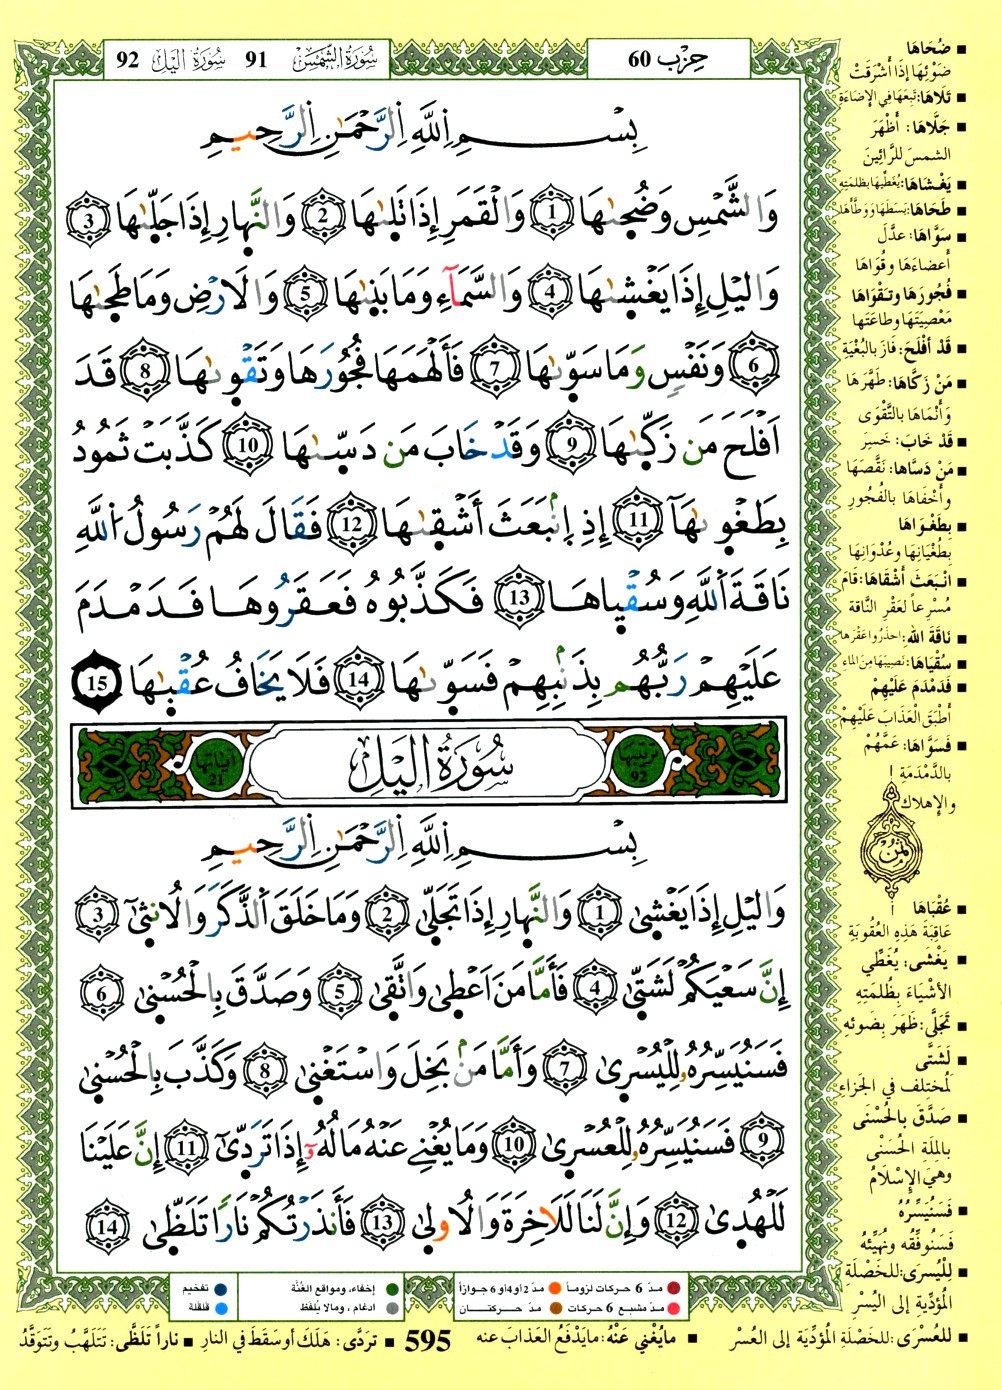 حِزْب 60
سُورَةُ الشَّمْسِ 91 سُورَةُ اليْلِ 92
بِسْمِ اِ۬للَّهِ اِ۬لرَّحْمَٰنِ اِ۬لرَّحِيمِ
وَالشَّمْسِ وَضُحَىٰهَا 1 وَالْقَمَرِ إِذَا تَلَىٰهَا 2 وَالنَّهَارِ إِذَا جَلَّىٰهَا 3
وَاليْلِ إِذَا يَغْشَىٰهَا 4 وَالسَّمَآءِ وَمَا بَنَىٰهَا 5 وَالَارْضِ وَمَا طَحَىٰهَا
6 وَنَفْسٖ وَمَا سَوَّىٰهَا 7 فَأَلْهَمَهَا فُجُورَهَا وَتَقْوَىٰهَا 8 قَدَ
اَفْلَحَ مَن زَكَّىٰهَا 9 وَقَدْ خَابَ مَن دَسَّىٰهَا 10 كَذَّبَتْ ثَمُودُ
بِطَغْوَىٰهَآ 11 إِذِ اِ۪نۢبَعَثَ أَشْقَىٰهَا 12 فَقَالَ لَهُمْ رَسُولُ اُ۬للَّهِ
نَاقَةَ اَ۬للَّهِ وَسُقْيَاهَا 13 فَكَذَّبُوهُ فَعَقَرُوهَا فَدَمْدَمَ
عَلَيْهِمْ رَبُّهُم بِذَنۢبِهِمْ فَسَوَّىٰهَا 14 فَلَا يَخَافُ عُقْبَىٰهَا 15
ترتيبها 92 سُورَةُ اليْلِ اياتها 21
بِسْمِ اِ۬للَّهِ اِ۬لرَّحْمَٰنِ اِ۬لرَّحِيمِ
وَاليْلِ إِذَا يَغْشَىٰ 1 وَالنَّهَارِ إِذَا تَجَلَّىٰ 2 وَمَا خَلَقَ اَ۬لذَّكَرَ وَالُانثَىٰٓ 3
إِنَّ سَعْيَكُمْ لَشَتَّىٰ 4 فَأَمَّا مَنَ اَعْطَىٰ وَاتَّقَىٰ 5 وَصَدَّقَ بِالْحُسْنَىٰ 6
فَسَنُيَسِّرُهُۥ لِلْيُسْرَىٰ 7 وَأَمَّا مَنۢ بَخِلَ وَاسْتَغْنَىٰ 8 وَكَذَّبَ بِالْحُسْنَىٰ
9 فَسَنُيَسِّرُهُۥ لِلْعُسْرَىٰ 10 وَمَا يُغْنِے عَنْهُ مَالُهُۥٓ إِذَا تَرَدَّىٰٓ 11 إِنَّ عَلَيْنَا
لَلْهُدَىٰ 12 وَإِنَّ لَنَا لَلَاخِرَةَ وَالُاولَىٰ 13 فَأَنذَرْتُكُمْ نَاراً تَلَظَّىٰ 14
ضُحَاهَا
ضَوْئِهَا إذَا أَشْرَقَتْ
تَلَاهَا: تَبِعَهَا فِي الإِضَاءَةِ
جَلَّاهَا: أَظْهَرَ
الشمسَ للرَّائِينَ
يَغْشَاهَا: يُغَطِّيهَا بظلمَتِهِ
طَحَاهَا: بَسَطَهَا وَوَطَّأَهَا
سَوَّاهَا: عدَّلَ
أعضاءَهَا وقُوَاهَا
فُجُورَهَا وتَقْوَاهَا
مَعْصِيَتَهَا وطاعَتَها
قَدْ أفْلَحَ: فَازَ بالبُغْيَةِ
مَنْ زَكَّاهَا: طَهَّرَهَا
وَأنْمَاهَا بالتَّقْوَى
قَدْ خَابَ: خَسِرَ
مَنْ دَسَّاهَا: نَقَّصَهَا
وأخْفَاهَا بالفُجُورِ
بِطَغْوَاهَا
بطُغْيَانِهَا وعُدْوَانِهَا
انْبَعَثَ أشْقَاهَا: قَامَ
مُسْرِعاً لعَقْرِ النَّاقةِ
نَاقَةَ اللهِ: احذَرُوا عَقْرَهَا
سُقْيَاهَا: نَصِيبَهَا مِنَ الماءِ
فَدَمْدَمَ عَلَيْهِمْ
أطْبَقَ العَذَابَ عَلَيْهِمْ
فَسَوَّاهَا: عَمَّهُمْ
بالدَّمْدَمَةِ
والإهلاك
ثمن
عُقْبَاهَا
عَاقِبَةَ هَذِهِ العُقُوبَةِ
يَغْشَى: يُغَطِّي
الأشْيَاءَ بِظُلمَتِهِ
تَجَلَّى: ظَهَرَ بِضَوئِهِ
لَشَتَّى
لَمُخْتلِف في الجَزاءِ
صَدَّقَ بالحُسْنَى
بالملَّةِ الحُسْنَى
وهيَ الإسْلَامُ
فَسَنُيَسِّرُهُ
فَسَنُوفِّقُه ونُهَيِّئُه
لِلْيُسْرَى: للخَصْلَةِ
المُؤدِّيةِ إلى اليُسْرِ
مدّ 6 حركات لزوماً مدّ 2 او 4 او 6 جوازاً إخفاء، ومواقع الغُنَّة تفخيم
مدّ مشبع 6 حركات مدّ حركتــان ادغام، ومالا يُلفَظ قلقلة
للعُسْرَى: للخَصْلَةِ المُؤدِّيَة إلى العُسْرِ مايُغْني عَنْهُ: مايَدْفَعُ العَذَابَ عنه 595 تردَّى: هَلَكَ أو سَقَطَ في النار ناراً تَلَظَّى: تَتَلَهَّبُ وتَتَوَقَّدُ